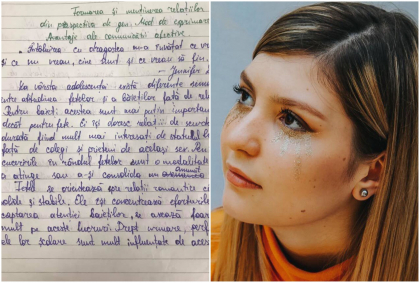 Formarea și menținerea relațiilor
din perspectiva de gen. Mod de exprimare
Avantaje ale comunicării afective
"Întâlnirea cu dragostea m-a învățat ce v
și ce nu vreau, cine sunt și ce vreau să fiu.
- Jennifer
La vârsta adolescenței există diferențe
între atitudinea fetelor și a băieților față de rel
Pentru băieți acestea sunt mai puțin important
decât pentru fete. Ei își doresc relații de scurtă
durată fiind mult mai interesați de statutul lo
față de colegi și prieteni de același sex.
cuceririle în rândul fetelor sunt o modalitate
a atinge sau a-și consolida un anumit
Fetele se orientează spre relații romantice
solide și stabile. Ele își concentrează eforturile
captarea atenției băieților, și axează foar
mult pe aceste lucruri. Drept urmare, perf
ele lor școlare sunt mult influențate de aces